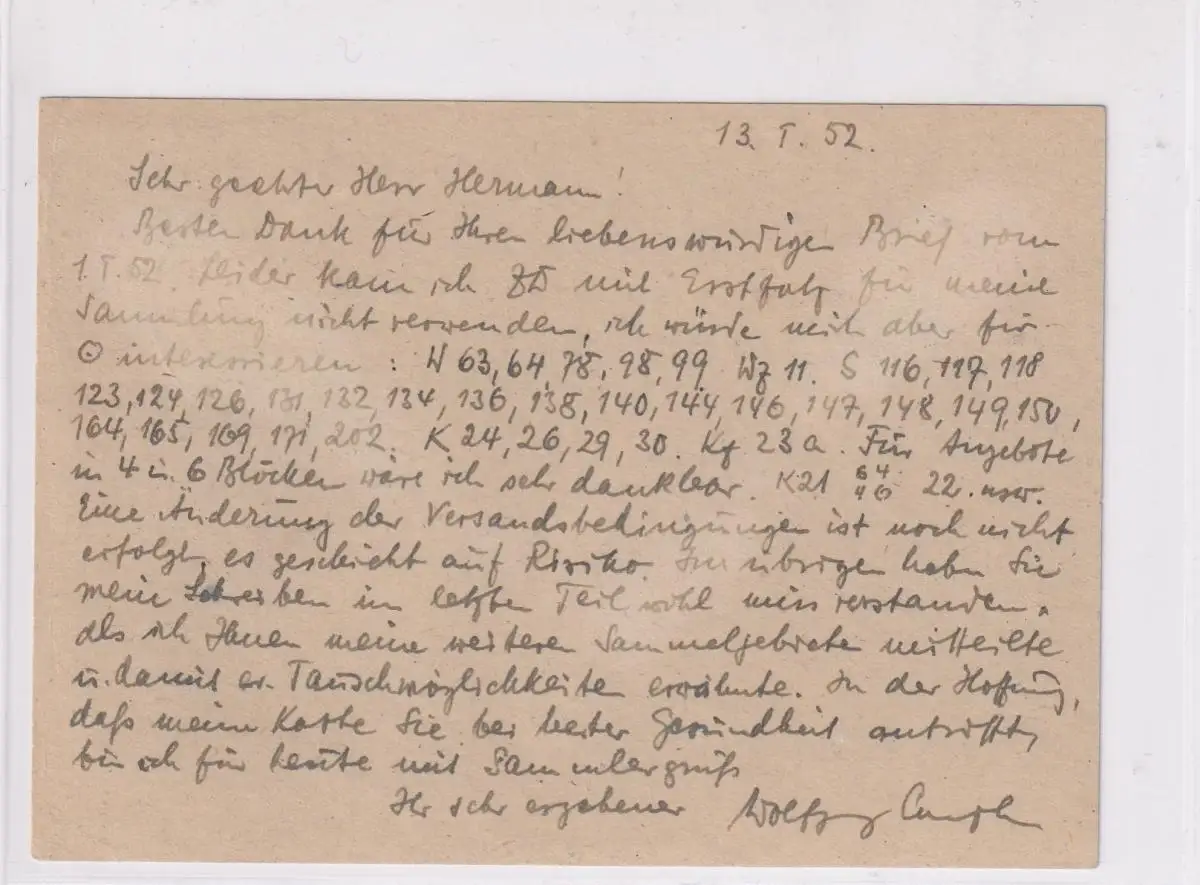 13. I. 52.
Sehr geehrter Herr Hermann!
Besten Dank für Ihren liebenswürdigen Brief vom
1. I. 52. Leider kann ich ZD mit Erstfalz für meine
Sammlung nicht verwenden, ich würde mich aber für
⊙ interessieren : W 63, 64, 78, 98, 99. Wz 11. S 116, 117, 118
123, 124, 126, 131, 132, 134, 136, 138, 140, 144, 146, 147, 148, 149, 150,
164, 165, 169, 171, 202. K 24, 26, 29, 30. Kz 23a. Für Angebote
in 4 u. 6 Blöcken wäre ich sehr dankbar. K21 64 46 22. usw.
Eine Änderung der Versandsbedingungen ist noch nicht
erfolgt, es geschieht auf Risiko. Im übrigen haben Sie
mein Schreiben im letzten Teil wohl missverstanden,
als ich Ihnen meine weiteren Sammelgebiete mitteilte
u. damit ev. Tauschmöglichkeiten erwähnte. In der Hoffnung,
daß meine Karte Sie bei bester Gesundheit antrifft,
bin ich für heute mit Sammlergruß
Ihr sehr ergebener Wolfgang